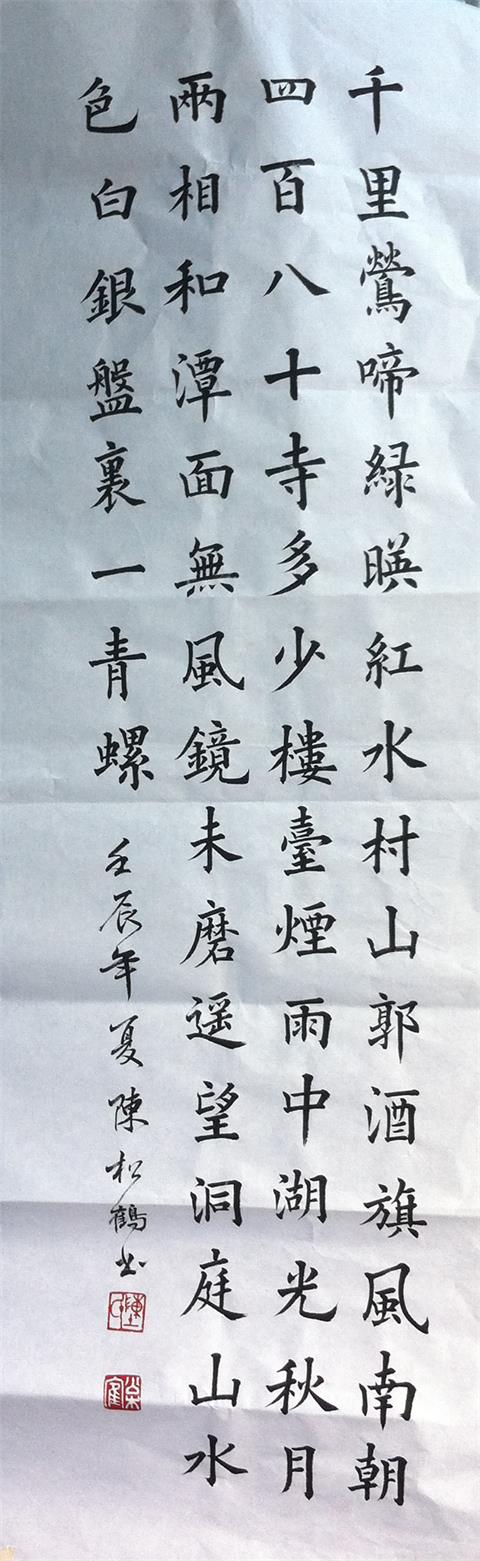 千里鶯啼綠暎紅水村山郭酒旗風南朝
四百八十寺多少樓臺煙雨中湖光秋月
兩相和潭面無風鏡未磨遥望洞庭山水
色白銀盤裏一青螺
壬辰年夏陳松鶴书